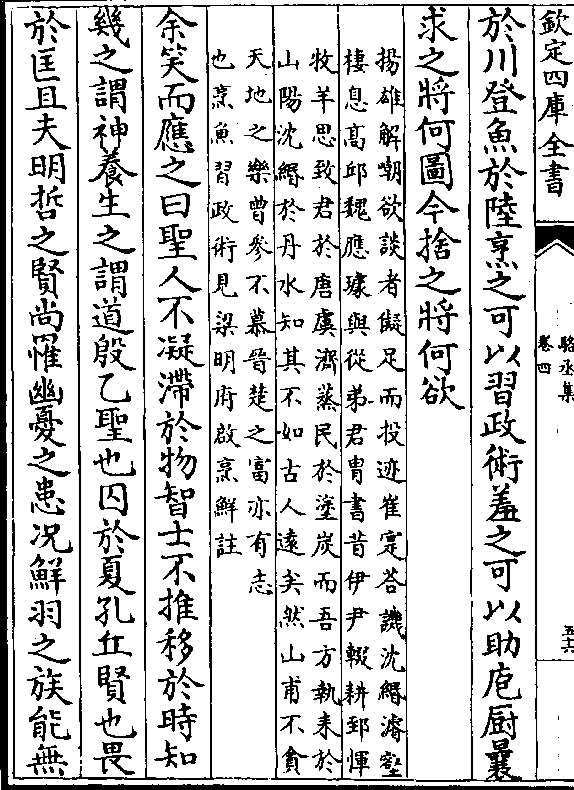 欽定四庫全書
駱丞集
卷四
於川登魚於陸烹之可以習政術羞之可以助庖厨曩
求之將何圖今捨之將何欲
揚雄解嘲欲談者儗足而投迹崔寔答譏沈緡濬壑
棲息髙邱魏應璩與從弟君冑書昔伊尹輟耕郅惲
牧羊思致君於唐虞濟蒸民於塗炭而吾方執耒於
山陽沈緡於丹水知其不如古人逺矣然山甫不貪
天地之樂曾參不慕晉楚之富亦有志
也烹魚習政術見梁明府啟烹鮮註
余笑而應之曰聖人不凝滯於物智士不推移於時知
幾之謂神養生之謂道殷乙聖也囚於夏孔丘賢也畏
於匡且夫明哲之賢尚罹幽憂之患况鮮羽之族能無